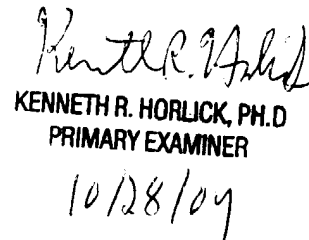 Kenneth R. Horlick
KENNETH R. HORLICK, PH.D
PRIMARY EXAMINER
10/28/04